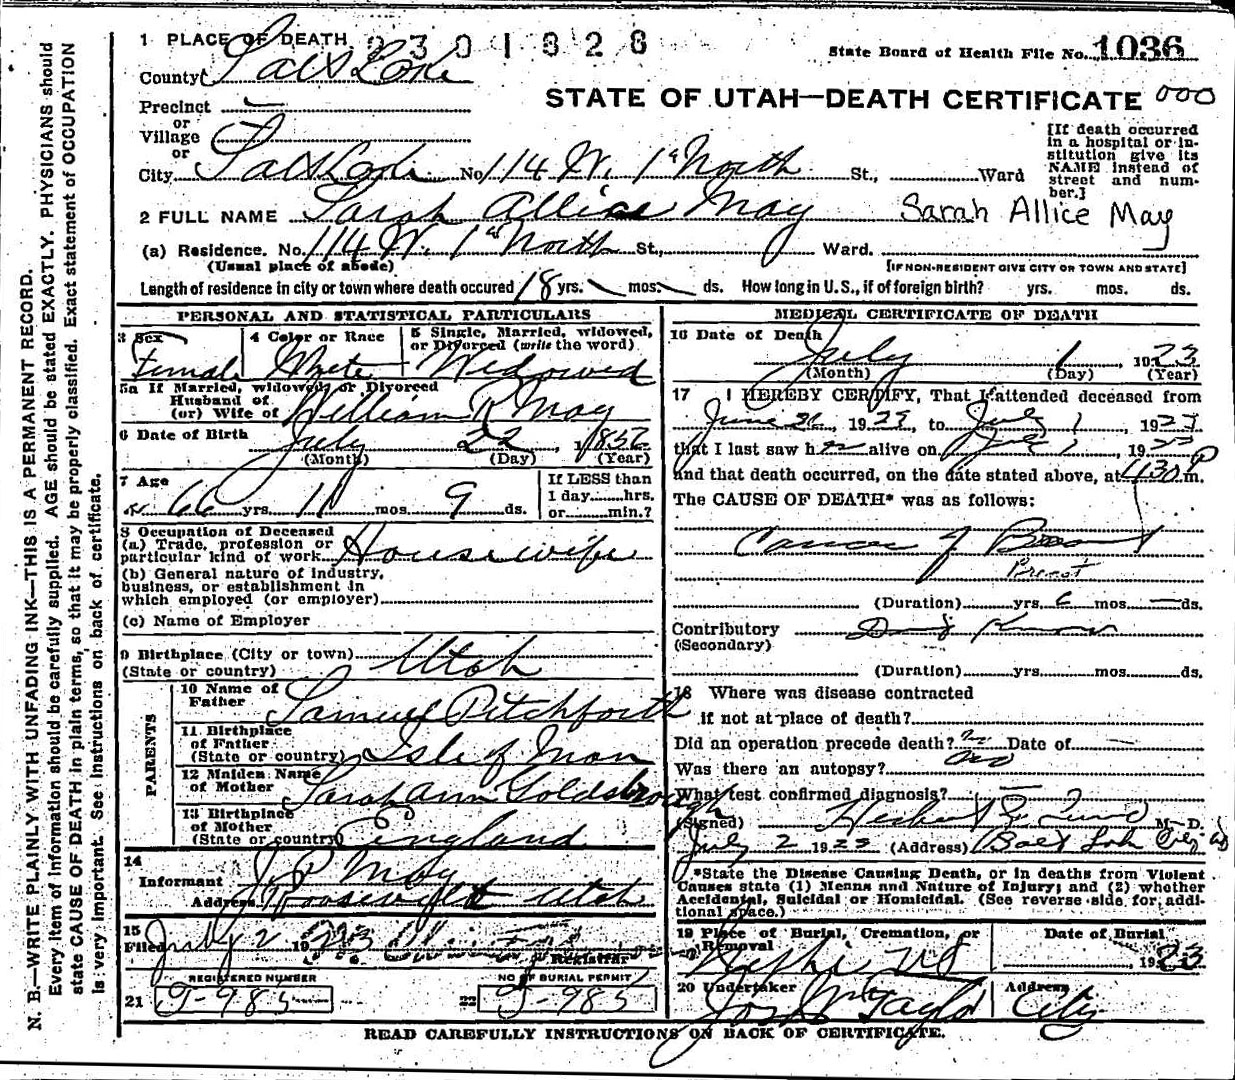 N. B.—WRITE PLAINLY WITH UNFADING INK—THIS IS A PERMANENT RECORD.
Every item of information should be carefully supplied. AGE should be stated EXACTLY. PHYSICIANS should
state CAUSE OF DEATH in plain terms, so that it may be properly classified. Exact statement of OCCUPATION
is very important. See instructions on back of certificate.
1 PLACE OF DEATH 2301828
State Board of Health File No. 1036
County Salt Lake
STATE OF UTAH—DEATH CERTIFICATE 000
Precinct
or
Village
or
City Salt Lake No. 114 W. 1st North St., Ward
[If death occurred
in a hospital or in-
stitution give its
NAME instead of
street and num-
ber.]
2 FULL NAME Sarah Allice May Sarah Allice May
(a) Residence. No. 114 W. 1st North St., Ward.
(Usual place of abode) [IF NON-RESIDENT GIVE CITY OR TOWN AND STATE]
Length of residence in city or town where death occured 18 yrs. mos. ds. How long in U.S., if of foreign birth? yrs. mos. ds.
PERSONAL AND STATISTICAL PARTICULARS
3 Sex Female
4 Color or Race White
5 Single, Married, widowed,
or Divorced (write the word)
Widowed
5a If Married, widowed, or Divorced
Husband of
(or) Wife of William R May
6 Date of Birth July 22 1856
(Month) (Day) (Year)
7 Age 66 yrs. 11 mos. 9 ds.
If LESS than
1 day hrs.
or min.?
8 Occupation of Deceased
(a) Trade, profession or
particular kind of work Housewife
(b) General nature of industry,
business, or establishment in
which employed (or employer)
(c) Name of Employer
9 Birthplace (City or town)
(State or country) Utah
PARENTS
10 Name of
Father Samuel Pitchforth
11 Birthplace
of Father
(State or country) Isle of Man
12 Maiden Name
of Mother Sarah Ann Goldsbrough
13 Birthplace
of Mother
(State or country) England
14
Informant J. P. May
Address Roosevelt Utah
15
Filed July 2 1923
Registrar
REGISTERED NUMBER
21 J-985
NO OF BURIAL PERMIT
22 J-985
MEDICAL CERTIFICATE OF DEATH
16 Date of Death
July 1 1923
(Month) (Day) (Year)
17 I HEREBY CERTIFY, That I attended deceased from
June 26, 1923, to July 1, 1923
that I last saw her alive on July 1, 1923
and that death occurred, on the date stated above, at 430 P m.
The CAUSE OF DEATH* was as follows:
Cancer of Breast
Breast
(Duration) yrs. 6 mos. — ds.
Contributory
(Secondary)
(Duration) yrs. mos. ds.
18 Where was disease contracted
if not at place of death?
Did an operation precede death? no Date of —
Was there an autopsy? no
What test confirmed diagnosis?
(Signed) M. D.
July 2 1923 (Address)
*State the Disease Causing Death, or in deaths from Violent
Causes state (1) Means and Nature of Injury; and (2) whether
Accidental, Suicidal or Homicidal. (See reverse side for addi-
tional space.)
19 Place of Burial, Cremation, or
Removal
Nephi
Date of Burial
1923
20 Undertaker
Jos Wm Taylor
Address
City
READ CAREFULLY INSTRUCTIONS ON BACK OF CERTIFICATE.